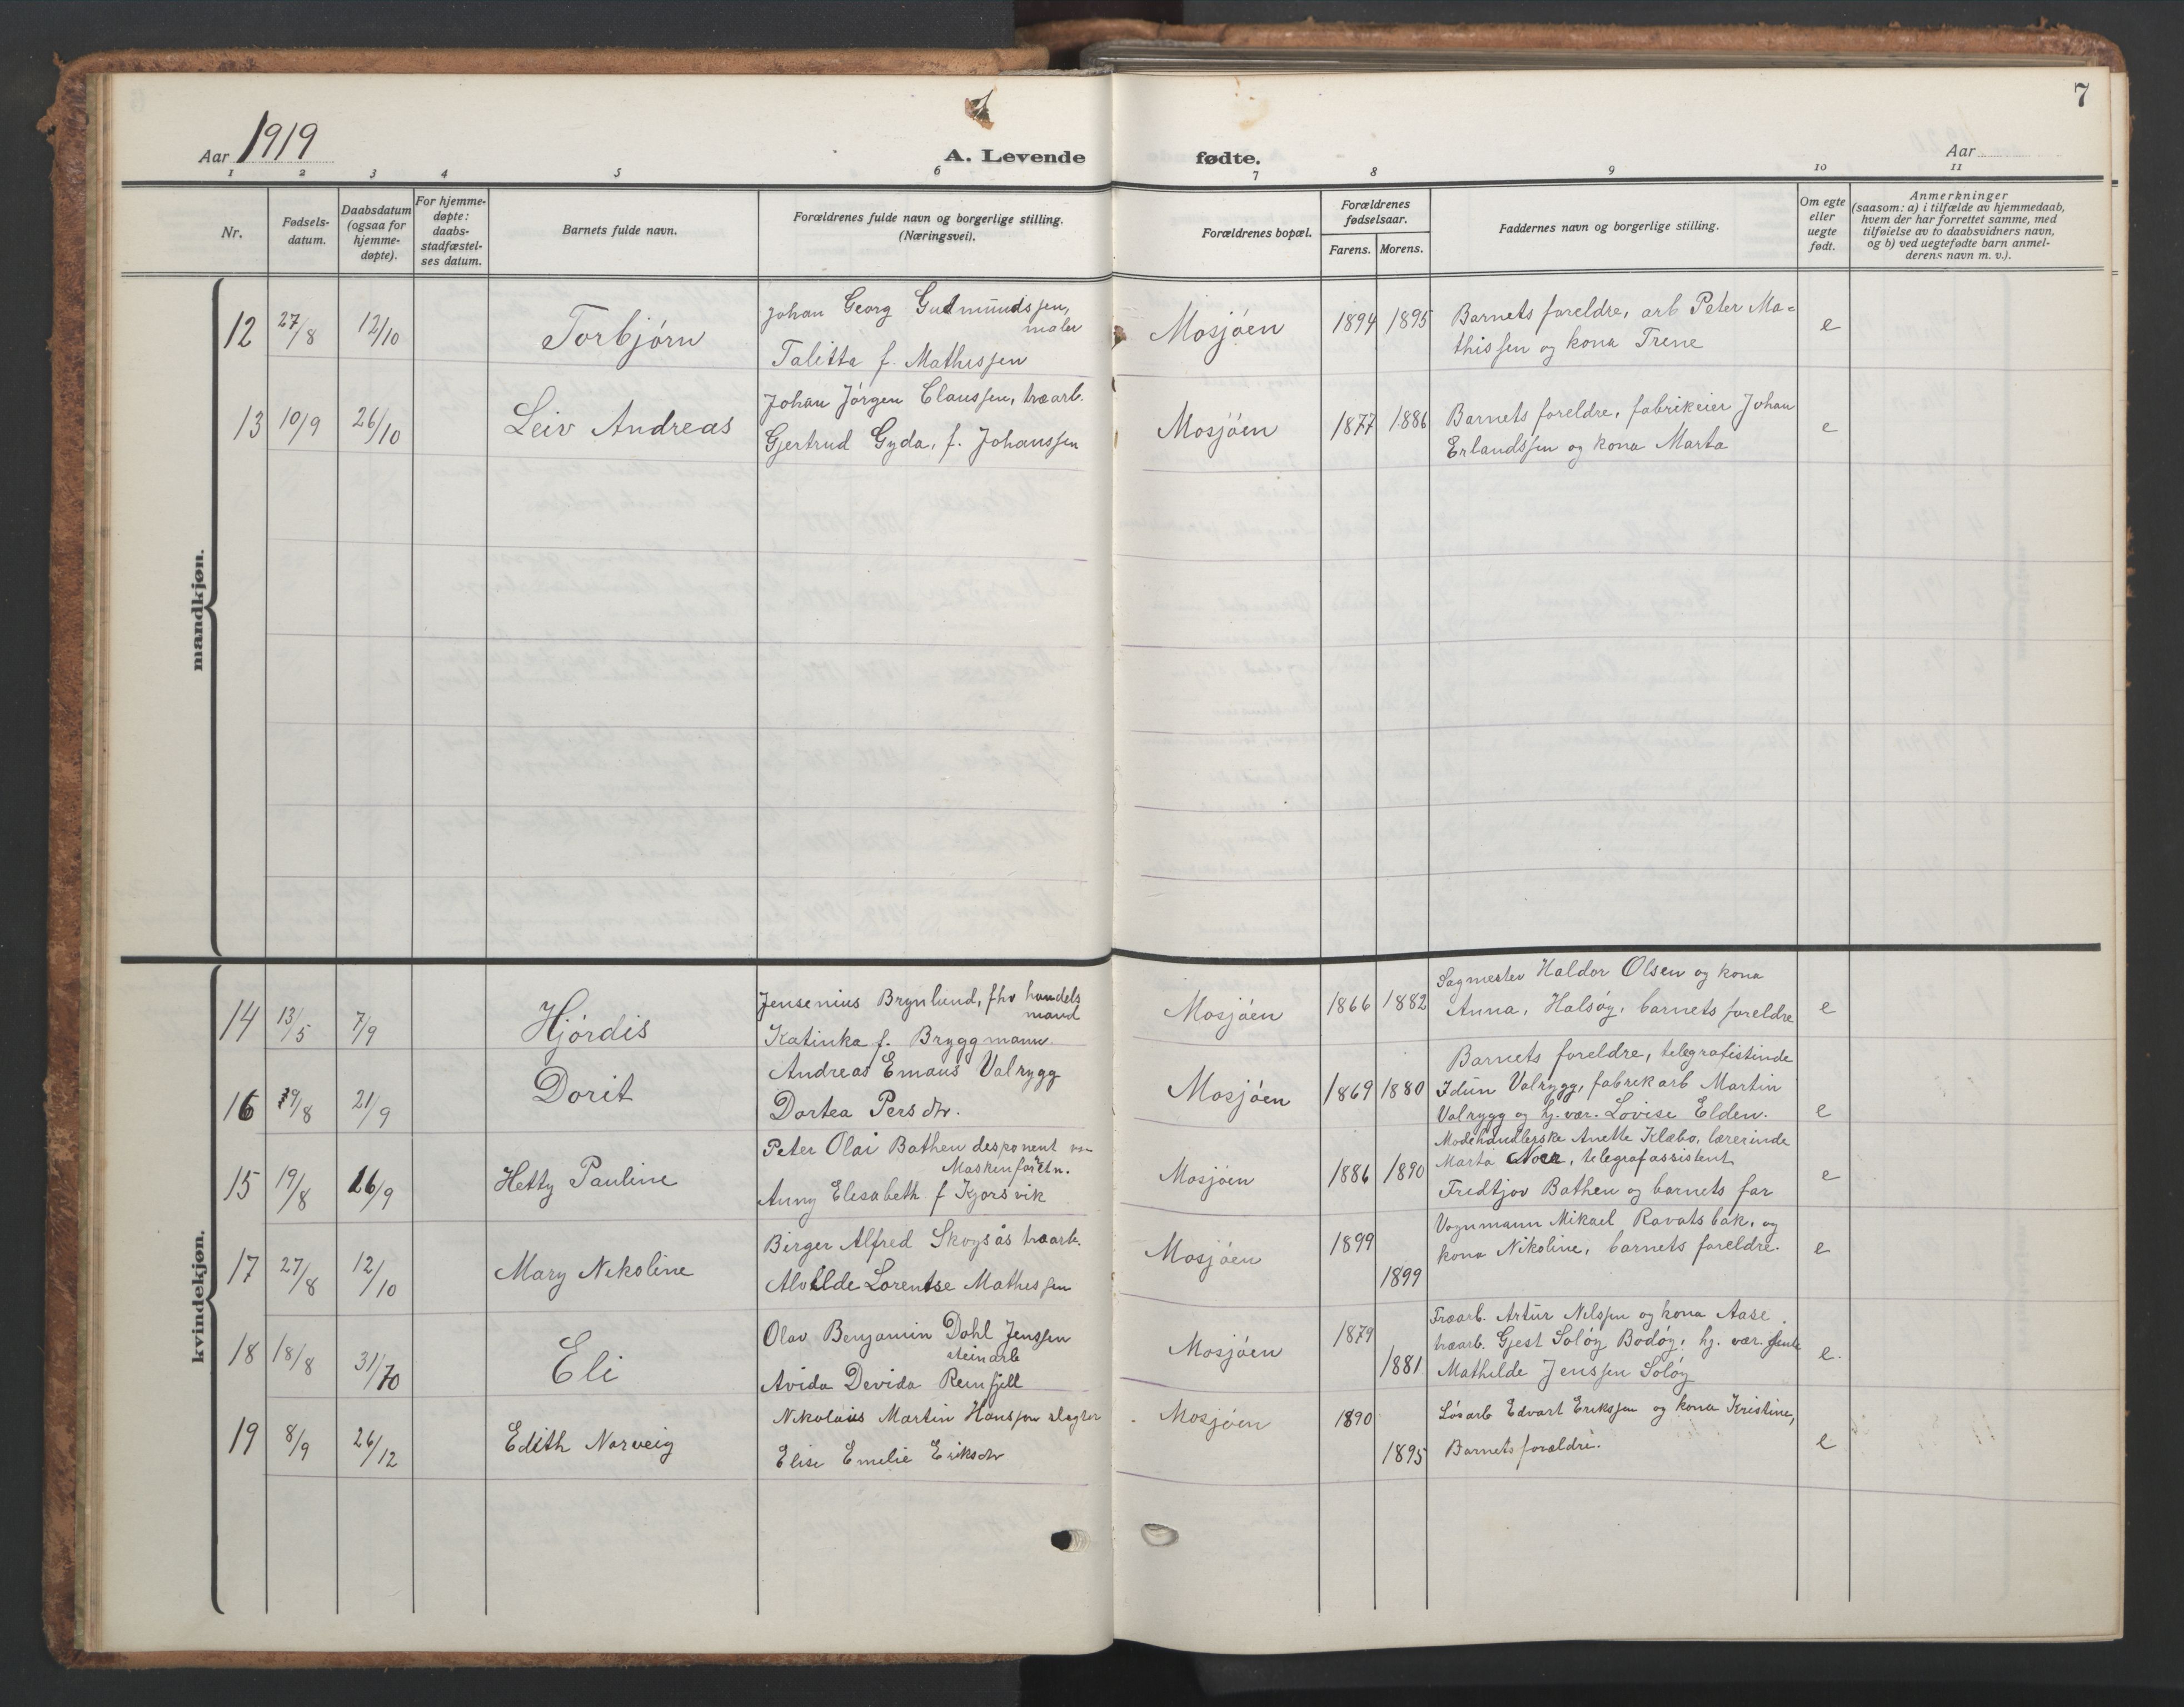 7
Aar 1919
A. Levende fødte.
Aar
1 2 3 4 5 6 7 8 9 10 11
Nr.
Fødsels-
datum.
Daabsdatum
(ogsaa for
hjemme-
døpte).
For hjemme-
døpte:
daabs-
stadfæstel-
ses datum.
Barnets fulde navn.
Forældrenes fulde navn og borgerlige stilling.
(Næringsvei).
Forældrenes bopæl.
Forældrenes
fødselsaar.
Farens. Morens.
Faddernes navn og borgerlige stilling.
Om egte
eller
uegte
født.
Anmerkninger
(saasom: a) i tilfælde av hjemmedaab,
hvem der har forrettet samme, med
tilføielse av to daabsvidners navn,
og b) ved uegtefødte barn anmel-
derens navn m. v.).
mandkjøn.
12 27/8 12/10 Torbjórn
Johan Georg Gudmundssen,
maler
Talitta f. Mathissen
Mosjóen 1894 1895
Barnets foreldre, arb Peter Ma=
thissen og kona Trene
e
13 10/9 26/10 Leiv Andreas
Johan Jórgen Claussen, træarb.
Gjertrud Gyda, f. Johanssen
Mosjóen 1877 1886
Barnets foreldre, fabrikeier Johan
Erlandssen og kona Marta
e
kvindekjøn.
14 13/5 7/9 Hjórdis
Jensenius Brynlund, fhv handels
mand
Katinka f. Bryggmann
Mosjóen 1866 1882
Sagmester Haldor Olsen og kona
Anna, Halsóy, barnets foreldre
e
16 29/8 21/9 Dorit
Andreas Emaus Valrygg
Dortea Persdtr.
Mosjóen 1869 1880
Barnets foreldre, telegrafistinde
Idun Valrygg, fabrikarb Martin
Valrygg og hj. vær. Lovise Elden.
e
15 19/8 16/9 Hetty Pauline
Peter Olai Bathen desponent
Maskenforetn.
Anny Elesabeth f Kjorsvik
Mosjóen 1886 1890
Modehandlerske Anette Klæbo, lærerinde
Marta, telegrafassistent
Fredtjov Bathen og barnets far
e
17 27/8 12/10 Mary Nekoline
Birger Alfred Skogsås træarb.
Alvilde Lorentse Mathessen
Mosjóen 1899 1899
Vognmann Mikael Ravatsbak, og
kona Nikoline, barnets foreldre.
e
18 18/8 31/10 Eli
Olav Benjamin Dahl Jenssen
steinarb
Avida Devida Reinfjell
Mosjóen 1879 1881
Træarb. Artur Nelssen og kona Aase.
træarb. Gjest Solóy Bodóy, hj. vær.
Mathilde Jenssen Solóy
e.
19 8/9 26/12 Edith Norveig
Nikolaus Martin Hanssen slagter
Elise Emelie Eriksdtr
Mosjóen 1890 1895
Lósarb Edvart Erikssen og kona Kristine,
Barnets forældre.
e